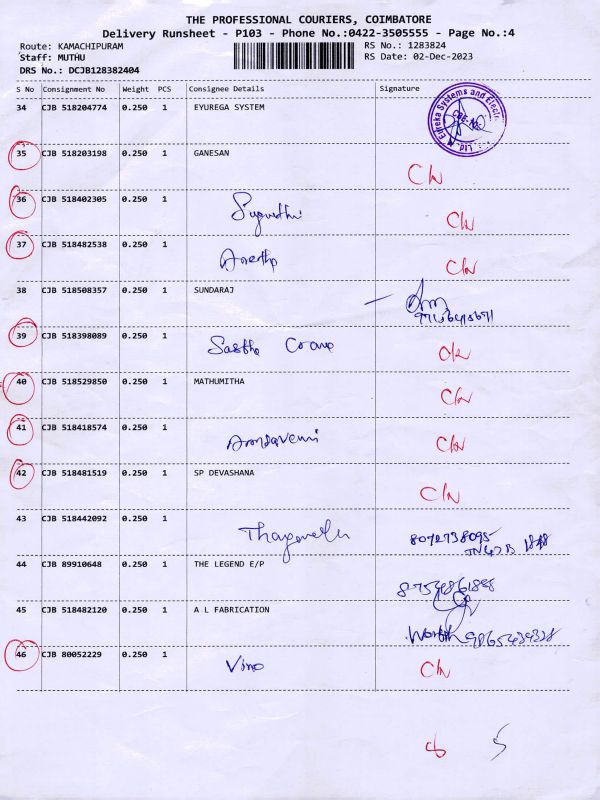 THE PROFESSIONAL COURIERS, COIMBATORE
Delivery Runsheet - P103 - Phone No.:0422-3505555 - Page No.:4
Route: KAMACHIPURAM RS No.: 1283824
Staff: MUTHU RS Date: 02-Dec-2023
DRS No.: DCJB128382404
S No Consignment No Weight PCS Consignee Details Signature
34 CJB 518204774 0.250 1 EYUREGA SYSTEM Eureka Systems and Electr Ltd.
35 CJB 518203198 0.250 1 GANESAN C/N
36 CJB 518402305 0.250 1 C/N
37 CJB 518482538 0.250 1 C/N
38 CJB 518508357 0.250 1 SUNDARAJ
39 CJB 518398089 0.250 1 Sastha C/N
40 CJB 518529850 0.250 1 MATHUMITHA C/N
41 CJB 518418574 0.250 1 C/N
42 CJB 518481519 0.250 1 SP DEVASHANA C/N
43 CJB 518442092 0.250 1 8072738095
44 CJB 89910648 0.250 1 THE LEGEND E/P
45 CJB 518482120 0.250 1 A L FABRICATION
46 CJB 80052229 0.250 1 Vino C/N
8 5